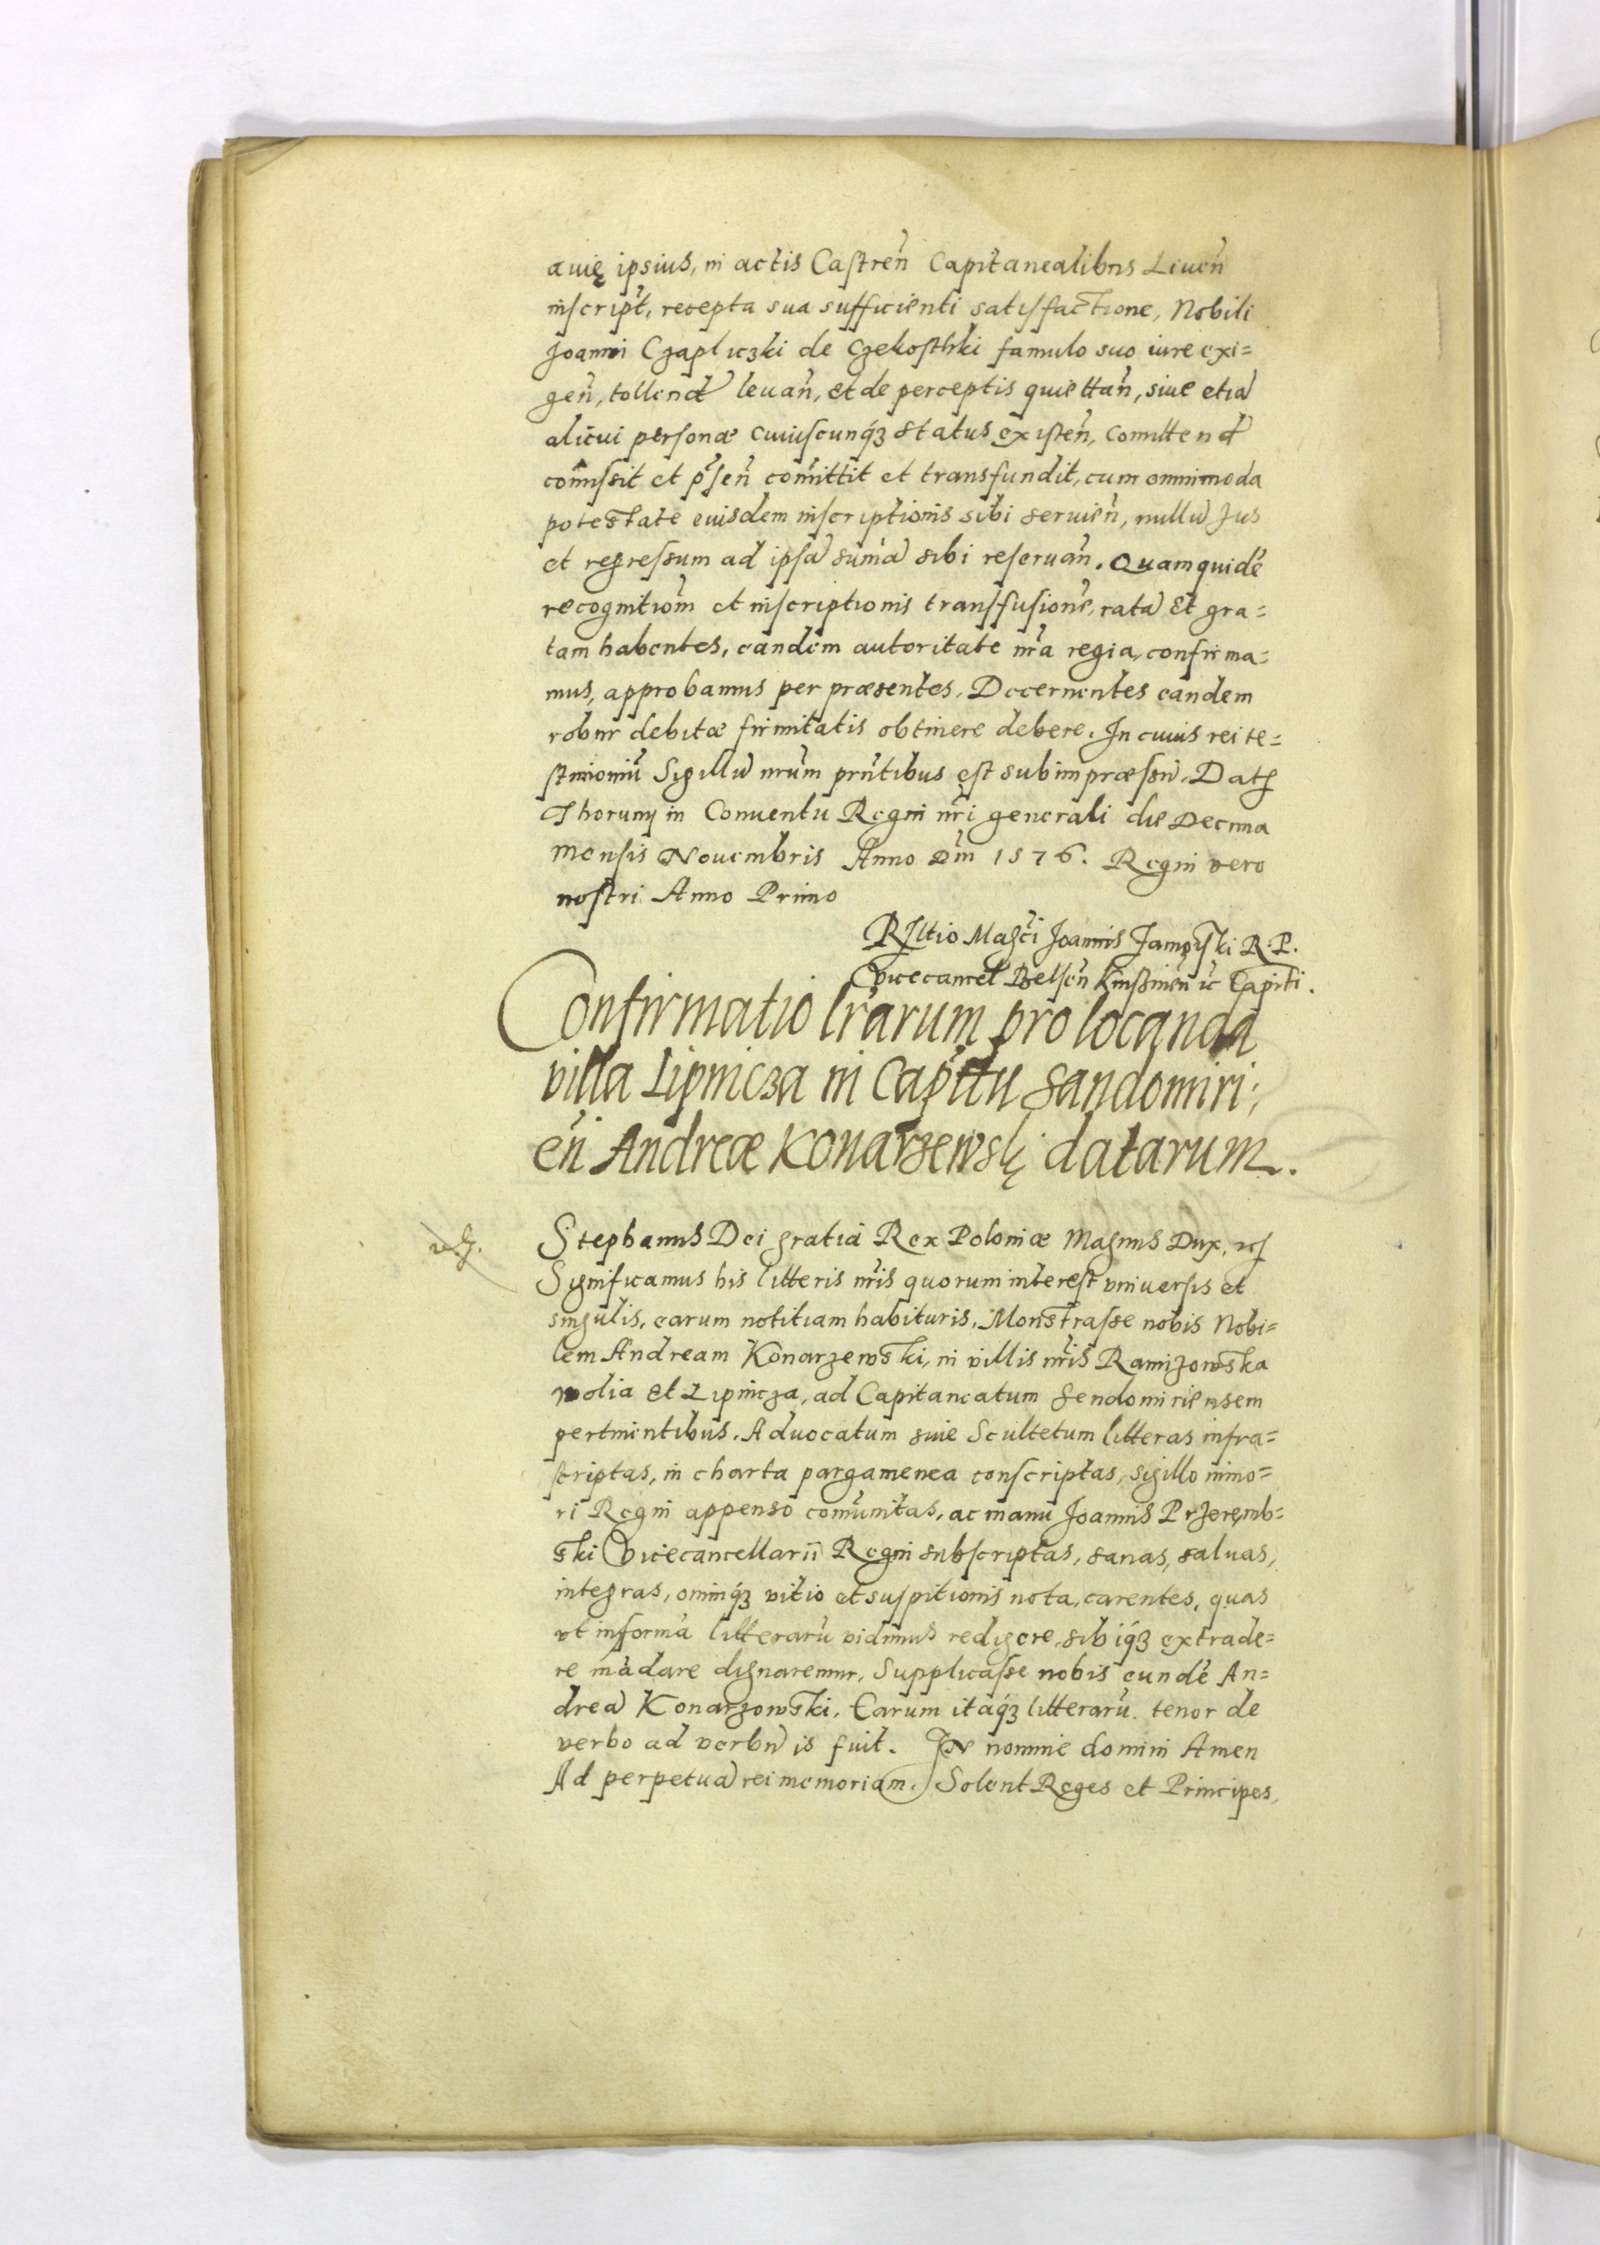 auię ipsius, in actis Castreñ Capitanealibus Liueñ
inscript̃, recepta sua sufficienti satisfactione, Nobili
Joanni Czapliczki de Czekosthki famulo suo iure exi=
geñ, tollend̃ leuañ, et de perceptis quiettañ, siue etiã
alicui personæ cuiuscunqȝ status existeñ, com̃ittend̃
com̃issit et p̃señ com̃ittit et transfundit, cum omnimoda
potestate euisdem inscriptionis sibi seruieñ, nullũ Jus
et regressum ad ipsã sum̃ã sibi reseruañ. Quamquidẽ
recognitiom̃ et inscriptionis transfusionẽ, ratã Et gra=
tam habentes, eandem autoritate nr̃a regia, confirma=
mus, approbamus per præsentes. Decernentes eandem
robur debitæ firmitatis obtinere debere. In cuius rei te=
stimoniũ Sigillũ nr̃um pñtibus est subimpræssũ. Datȝ
Thoruny in Conuentu Regni nr̃i generali die Decima
Mensis Nouembris Anno Dñi 1576. Regni vero
nostri Anno Primo
Rel̃tio Mag̃ci Joannis Zamoyski R. P.
Vicecancel̃ Belseñ Knissineñ ic̃ Capiti.
Confirmatio lr̃arum pro locanda
villa Lipnicza in Capit̃tu Sandomiri,
eñ Andreæ Konarzewsky datarum.
Stephanus Dei gratia Rex Poloniæ Magnus Dux, 
Significamus his litteris nr̃is quorum interest vniuersis et
singulis, earum notitiam habituris, Monstrasse nobis Nobi=
lem Andream Konarzewski, in villis nr̃is Ramizowska
wolia et Lipnicza, ad Capitaneatum Sendomiriensem
pertinentibus. Aduocatum siue Scultetum litteras infra=
scriptas, in charta pargamenea conscriptas, sigillo mino=
ri Regni appenso com̃unitas, ac manu Joannis Przeręmb=
ski Vicecancellarii Regni subscriptas, sanas, saluas,
integras, omniqȝ vitio et suspitionis nota, carentes, quas
vt in forma litterarũ vidimus redigere, sibiqȝ extrade=
re mãdare dignaremur, Supplicasse nobis eundẽ An=
dreã Konarzowski. Earum itaqȝ litterarũ tenor de
verbo ad verbũ is fuit. IN nomine domini Amen
Ad perpetuã rei memoriam. Solent Reges et Principes,